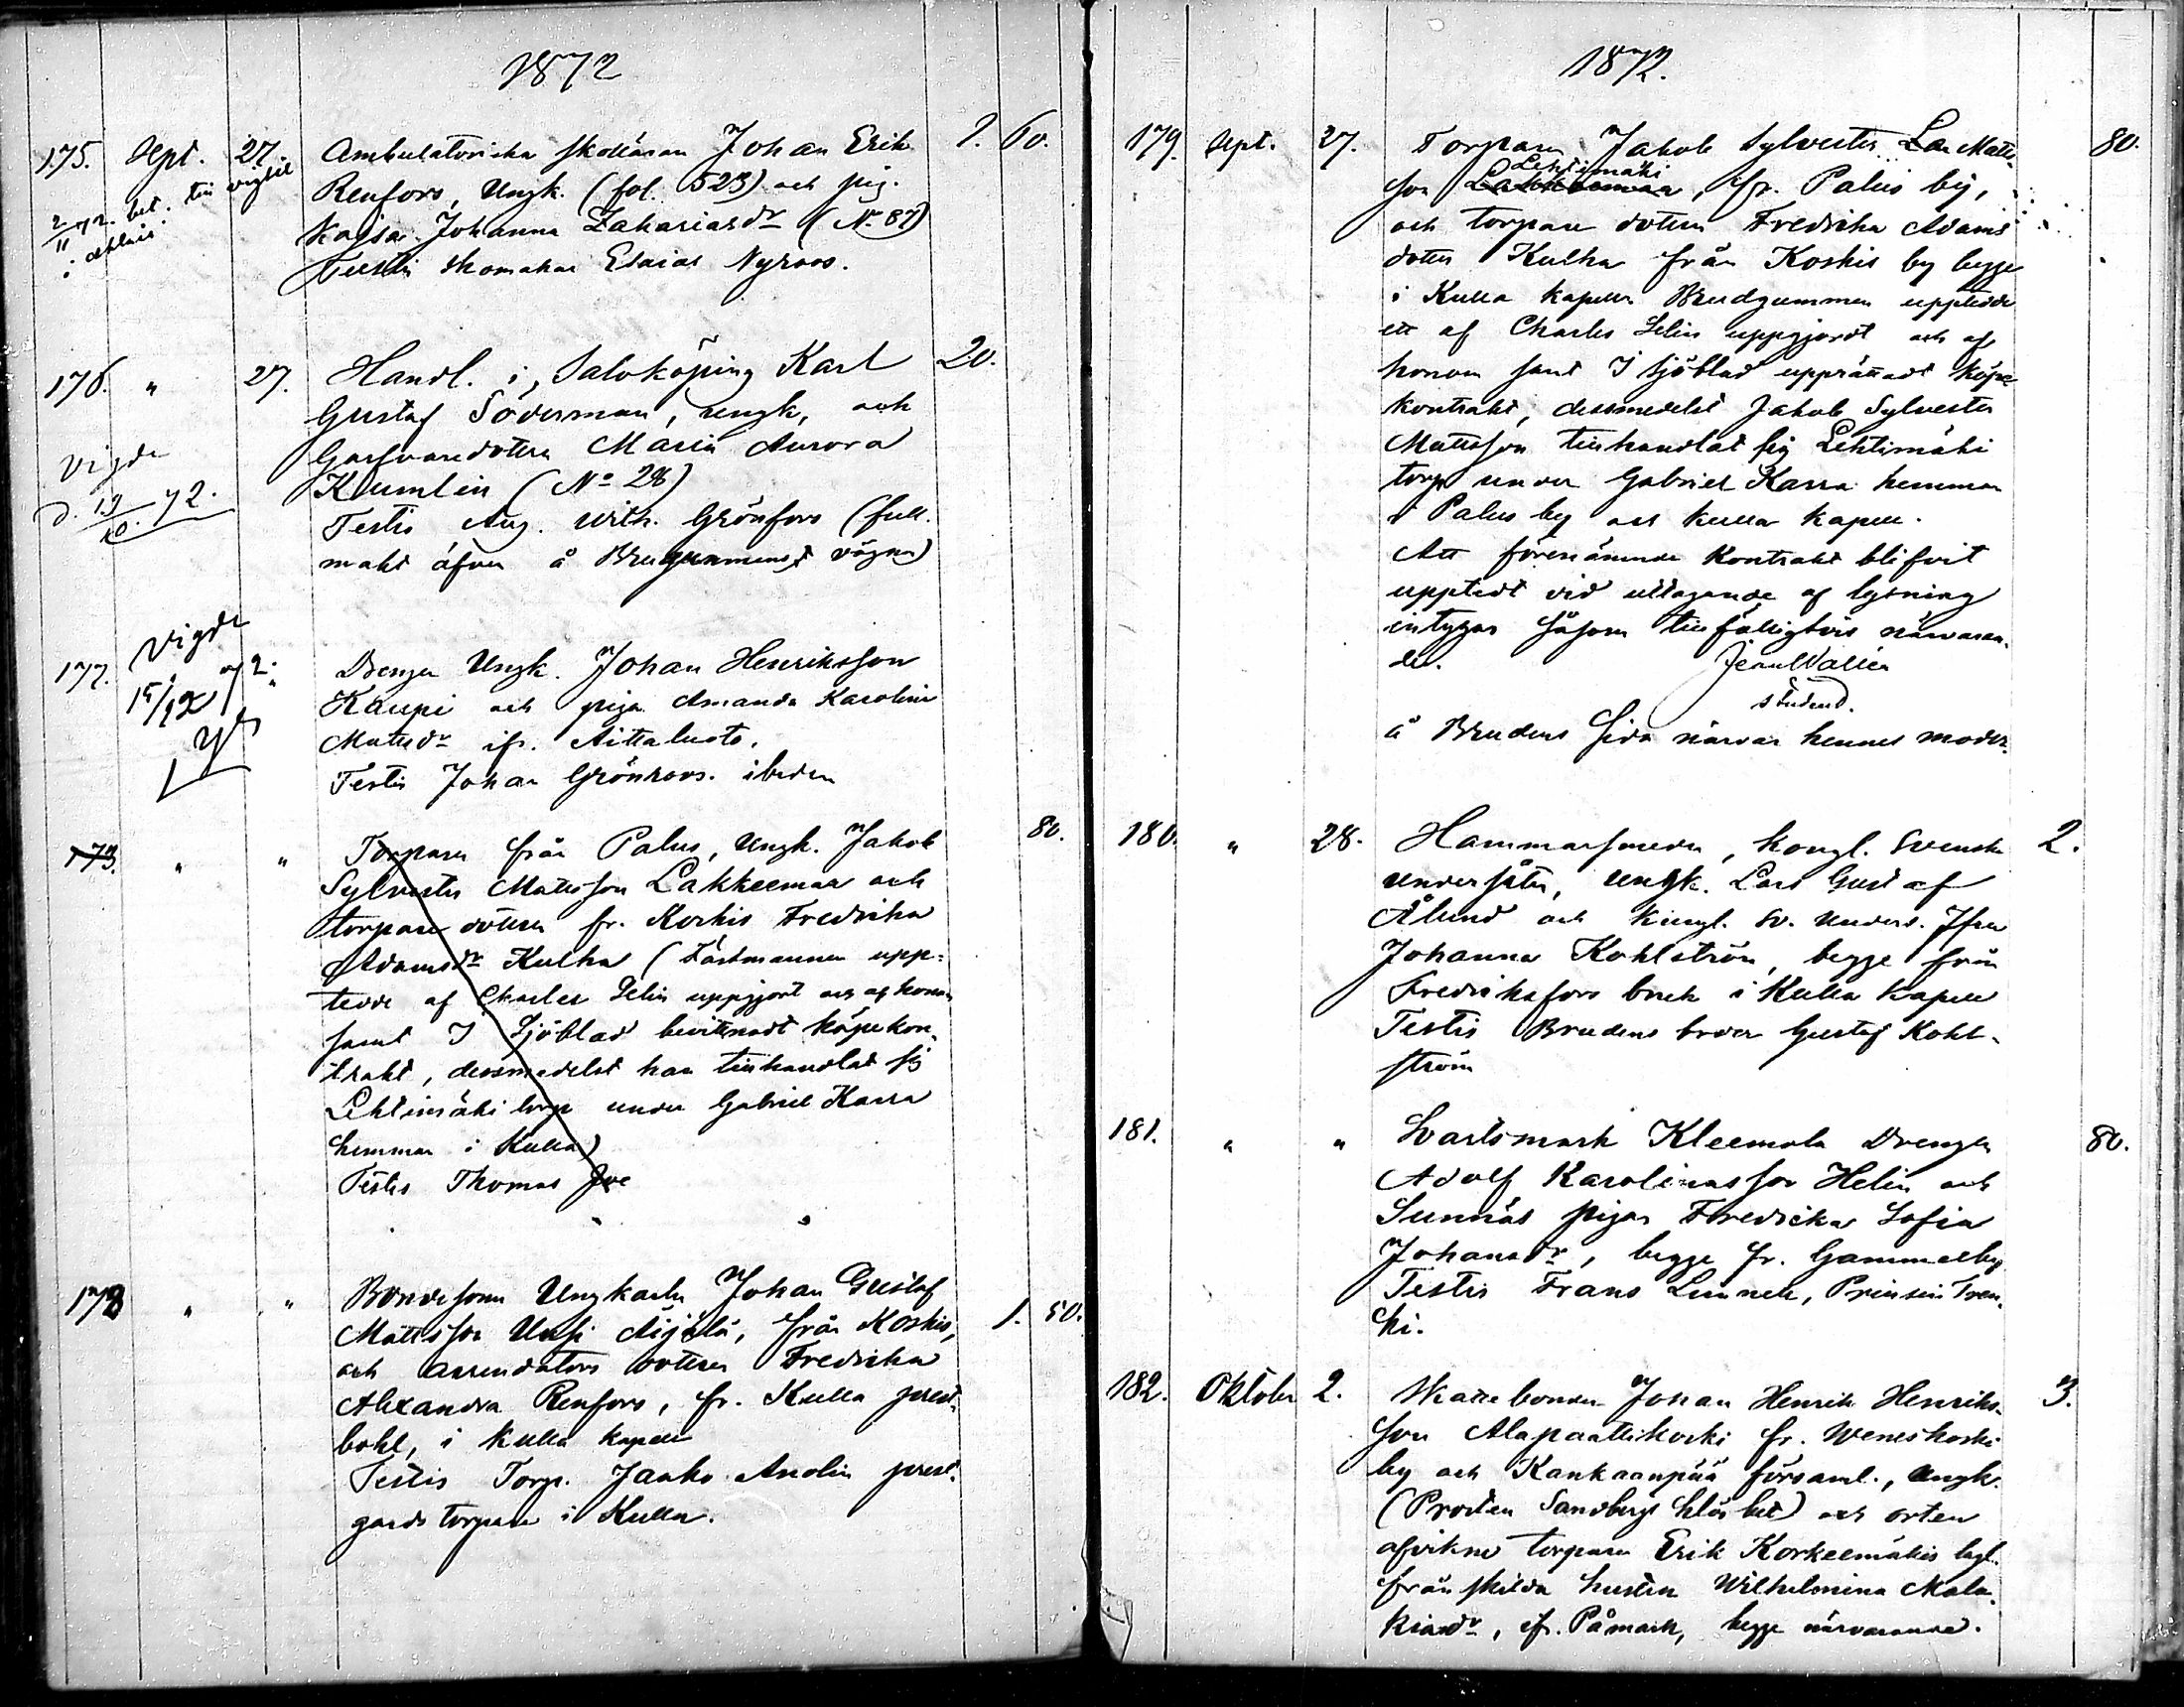 1872
175. Sept. 27. Ambulatoriska skolläraren Johan Erik 1. 60.
Renfors, Ungk. (fol. 523) och pig.
Kajsa Johanna Zakariasdr (No 87)
Testis skomakar Esaias Nyroos.
2/11 72. bet. till vigsel
i
176. " 27. Handl. i Saloköping Karl 20.
Gustaf Söderman, ungk, och
Garfvaredottern Maria Aurora
Kumlin (No 28)
Testis Aug. Wilh. Grönfors (full-
makt äfven å Brudgummens vägnar)
Vigde
d. 13/10. 72.
177. Drengen Ungk. Johan Henriksson
Kaupi och piga Amanda Karolina
Matsdr ifr. Aittaluoto.
Testis Johan Grönroos. ibidem
Vigde
15/12 72.
173. " " Torparen från Palus, Ungk. Jakob 80.
Sylvester Matsson Lakkeemaa och
torpare dottern fr. Koskis Fredrika
Adamsdr Kulha (Fästmannen upp-
tedde af Charles Selin uppgjort och af honom
samt I Sjöblad bevittnadt köpekon-
trakt, dessmedelst han tillhandlat sig
Lehtimäki torp under Gabriel Karra
hemman i Kulla)
Testis Thomas
178 " " Bondesonen Ungkarlen Johan Gustaf 1. 50.
Mattsson Uusi Äijälä, från Koskis,
och arrendators dottern Fredrika
Alexandra Renfors, fr. Kulla prest-
bohl, i Kulla kapell
Testis Torp. Jaakko Anolin prest-
gårds torpare i Kulla.
1872.
179. Sept. 27. Torparen Jakob Sylvester Matts- 80.
Lehtimäki
son Lakkeemaa, fr. Palus by,
och torpare dottern Fredrika Adams
dotter Kulha från Koskis by begge
i Kulla kapell. Brudgummen upptedde
ett af Charles Selin uppgjordt och af
honom samt I Sjöblad köpe
kontrakt, dessmedelst Jakob Sylvester
Mattsson tillhandlat sig Lehtimäki
torp under Gabriel Karra hemman
i Palus by och Kulla kapell.
Att förenämnde kontrakt blifvit
upptedt vid uttagande af lysning
intygar såsom tillfälligtvis närvaran-
de. Jean Wallin
student.
å Brudens sida närvar hennes moder.
180. " 28. Hammarsmeden, kongl. Svenska 2.
undersåten, ungk. Lars Gustaf
Ålund och kungl. Sv. unders. Jfrn
Johanna Kohlström, begge från
Fredriksfors bruk i Kulla kapell
Testis Brudens broder Gustaf Kohl-
ström
181. " " Svartsmark Kleemola Drengen 80.
Adolf Karolinasson Helin och
Sunnäs pigan Fredrika Sofia
Johansdr, begge fr. Gammelby
Testis Frans Linnell,
ki.
182. Oktober 2. Skattebonden Johan Henrik Henriks- 3.
son Alapaattikoski fr. Weneskoski
by och Kankaanpää församl., Ungk.
(Prosten Sandbergs ) och orten
afvikne torparen Erik Korkeemäkis lagl.
frånskilda hustru Wilhelmina Mala-
kiasdr, ifr. Påmark, begge närvarande.